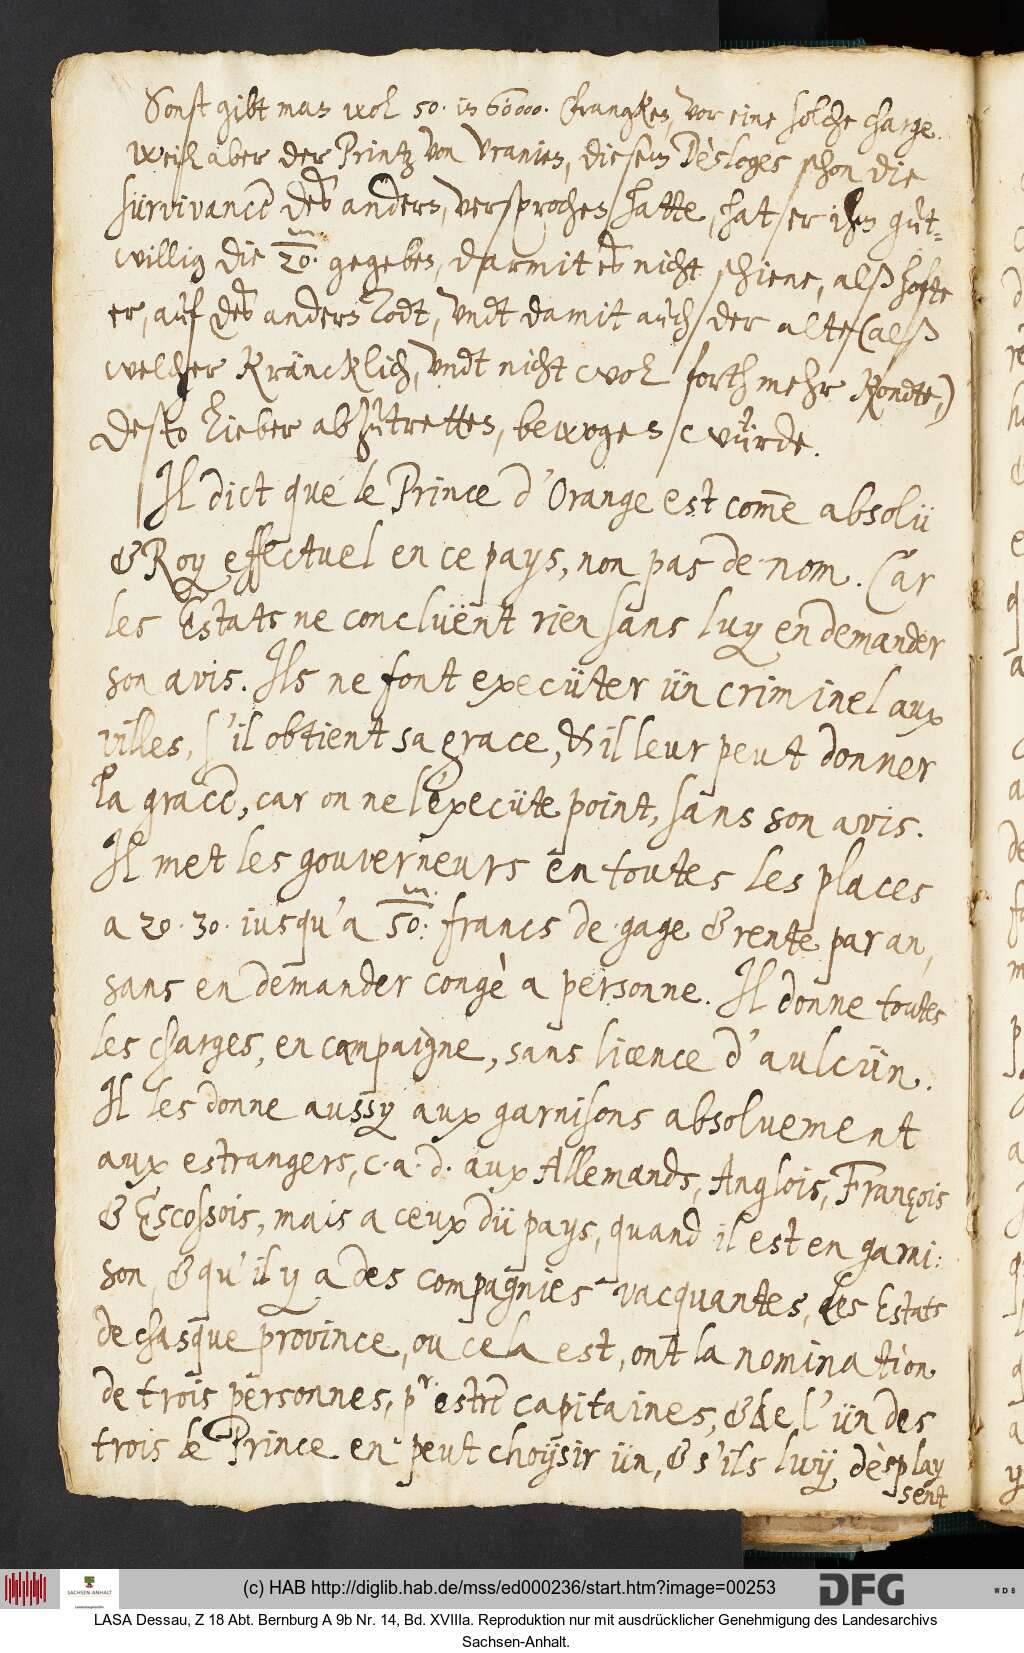 Sonst gibt man wol 50. in 60000. Francken, vor eine solche charge.
Weil aber der Printz von Uranien, diesem Dèsloges schon die
survivance des andern, versprochen hatte, hat er ihm gut=
willig die 20. m gegeben, darmit es nicht schiene, alß hofte
er, auf des andern Todt, undt damit auch der alte (alß
welcher kräncklich, undt nicht wol forth mehr kondte,)
desto lieber abzutretten, bewogen würde.
Il dict que le Prince d'Orange est come absolü
& Roy effectuel en ce pays, non pas de nom. Car
les Estats ne conclüent rien sans luy en demander
son avis. Ils ne font execüter ün criminel aux
villes, s'il obtient sa grace, & il leur peut donner
la grace, car on ne l'execüte point, sans son avis.
Il met les gouverneurs en toutes les places
a 20. 30. iusqu'a 50. m francs de gage & rente par an,
sans en demander congè a personne. Il donne toutes
les charges, en campaigne, sans licence d'aulcün.
Il les donne aussy aux garnisons absoluement
aux estrangers, c. a. d. aux Allemands, Anglois, François
& Escossois, mais a ceux dü pays, quand il est en garni:
son, & qu'il y a des compagnies vacquantes, les Estats
de chasque province, ou cela est, ont la nomination
de trois personnes, pr. estre capitaines, & de l'ün des
trois le Prince en peut choysir ün, & s'ils luy desplay
sent
(c) HAB http://diglib.hab.de/mss/ed000236/start.htm?image=00253
SACHSEN-ANHALT
DFG
WDB
LASA Dessau, Z 18 Abt. Bernburg A 9b Nr. 14, Bd. XVIIIa. Reproduktion nur mit ausdrücklicher Genehmigung des Landesarchivs
Sachsen-Anhalt.